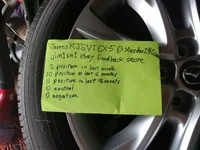 James
jim1sn1 ebay feedback score
2 positive in last month
10 positive in last 6 months
11 positive in last 12 months
0 neutral
0 negative.